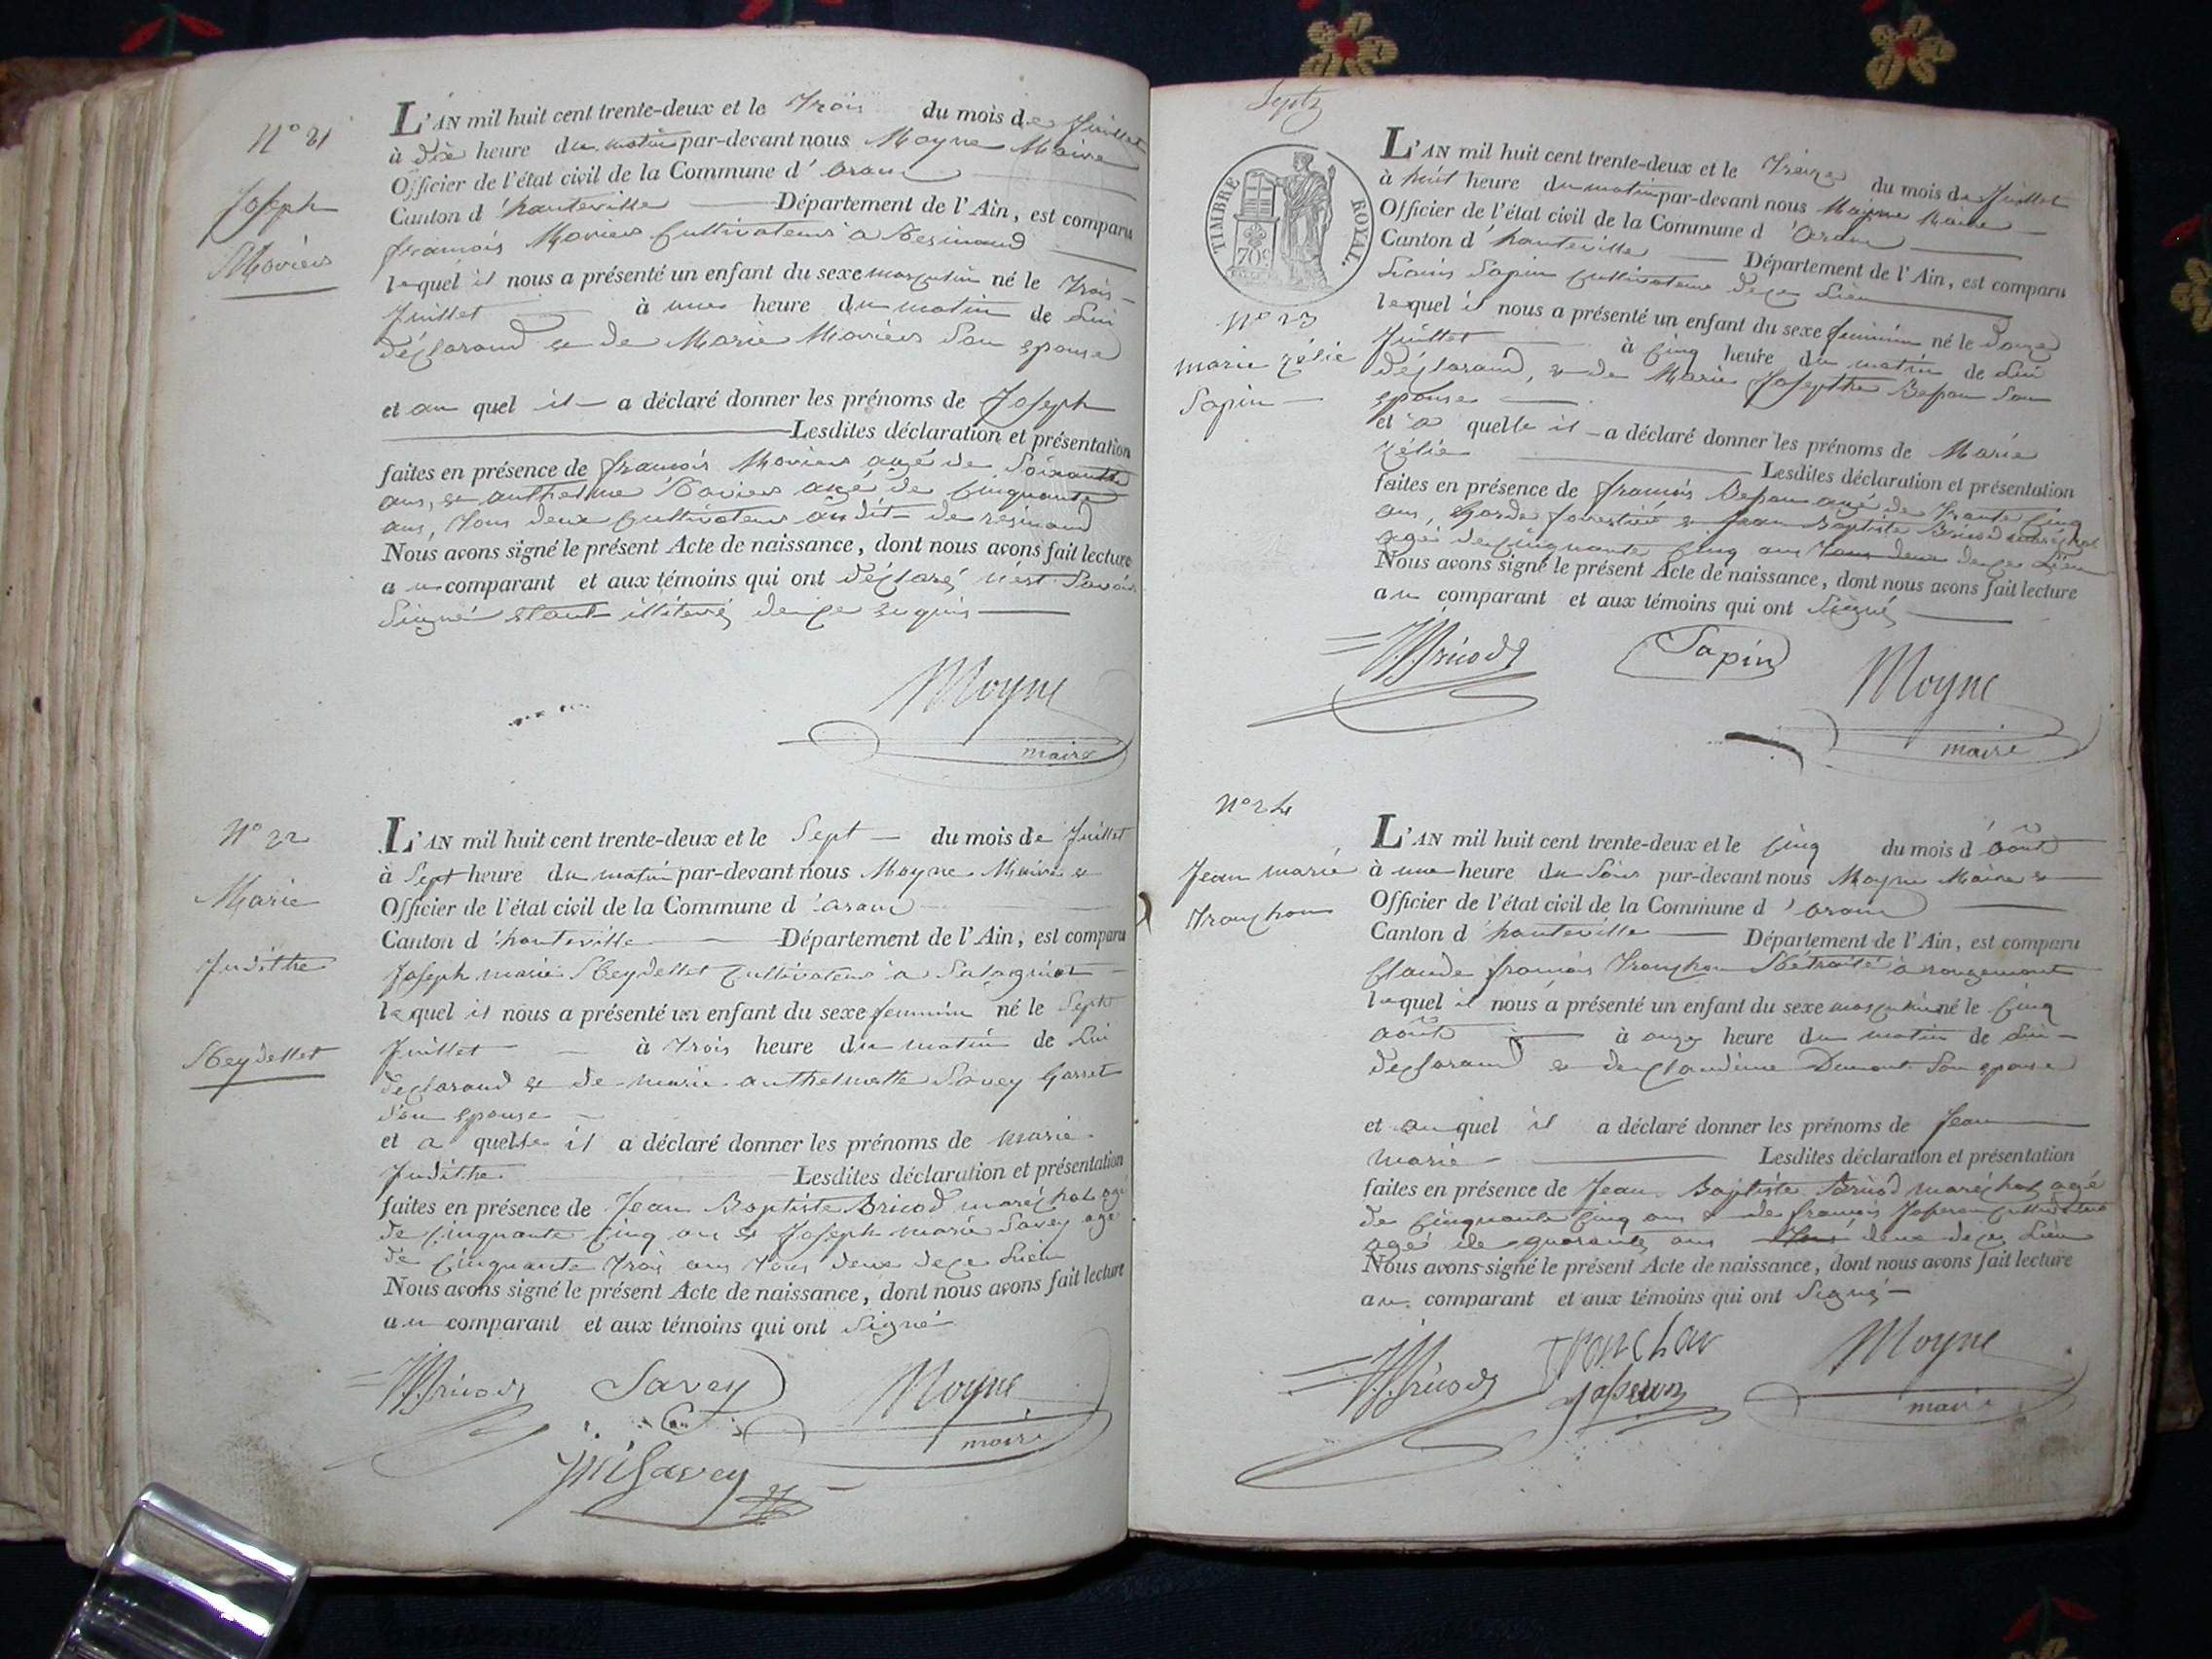 N° 21
Joseph
Moviers
L'AN mil huit cent trente-deux et le Trois du mois de Juillet
à dix heure du matin par-devant nous Moyne Maire
Officier de l'état civil de la Commune d' aranc
Canton d' hauteville Département de l'Ain, est comparu
francois Cultivateur a Resinand
lequel il nous a présenté un enfant du sexe masculin né le Trois
Juillet à une heure du matin de Lui
déclarand et de Marie son epouse
et au quel il a déclaré donner les prénoms de Joseph
Lesdites déclaration et présentation
faites en présence de francois agé de Soixante
ans, et anthelme agé de Cinquante
ans, tous deux Cultivateur audit de resinand
Nous avons signé le présent Acte de naissance, dont nous avons fait lecture
au comparant et aux témoins qui ont déclaré n'est Savoir
Signé étant illiteré de ce requis
Moyne
maire
N° 22
Marie
Judithe
Reydellet
L'AN mil huit cent trente-deux et le Sept du mois de Juillet
à Sept heure du matin par-devant nous Moyne Maire et
Officier de l'état civil de la Commune d' aranc
Canton d' hauteville Département de l'Ain, est comparu
Joseph marie Reydellet Cultivateur a
lequel il nous a présenté un enfant du sexe feminin né le Sept
Juillet à trois heure du matin de Lui
declarand et de marie anthelmette Savey Garret
Son epouse
et a quelle il a déclaré donner les prénoms de marie
Judithe Lesdites déclaration et présentation
faites en présence de Jean Baptiste Bricod maréchal agé
de Cinquante Cinq ans et Joseph marie Savey agé
de Cinquante trois ans tous deux de ce Lieu
Nous avons signé le présent Acte de naissance, dont nous avons fait lecture
au comparant et aux témoins qui ont Signé
JBricod Savey Moyne
maire
Savey
Septz
TIMBRE ROYAL.
70c
N° 23
marie zélie
Sapin
L'AN mil huit cent trente-deux et le Treize du mois de Juillet
à huit heure du matin par-devant nous Moyne Maire
Officier de l'état civil de la Commune d' aranc
Canton d' hauteville Département de l'Ain, est comparu
Louis Sapin Cultivateur de ce Lieu
lequel il nous a présenté un enfant du sexe feminin né le douze
Juillet à Cinq heure du matin de Lui
déclarand, et de Marie Josephthe Son
epouse
et a quelle il a déclaré donner les prénoms de Marie
zélie Lesdites déclaration et présentation
faites en présence de francois agé de trante Cinq
ans, Garde forestier et Jean Baptiste Bricod maréchal
agé de Cinquante Cinq ans tous deux de ce Lieu
Nous avons signé le présent Acte de naissance, dont nous avons fait lecture
au comparant et aux témoins qui ont Signé
JBricod Sapin Moyne
maire
N° 24
Jean marie
Tronchon
L'AN mil huit cent trente-deux et le Cinq du mois d'août
à une heure du Soir par-devant nous Moyne Maire et
Officier de l'état civil de la Commune d' aranc
Canton d' hauteville Département de l'Ain, est comparu
Claude francois Tronchon Retraité a rougemont
lequel il nous a présenté un enfant du sexe masculin né le Cinq
août à onze heure du matin de Lui
declarand et de Claudine Dumont Son epouse
et au quel il a déclaré donner les prénoms de Jean
marie Lesdites déclaration et présentation
faites en présence de Jean Baptiste Bricod maréchal agé
de Cinquante Cinq ans et de francois Joseran Cultivateur
agé de quarante ans tous deux de ce Lieu
Nous avons signé le présent Acte de naissance, dont nous avons fait lecture
au comparant et aux témoins qui ont Signé
JBricod Tronchon Moyne
maire